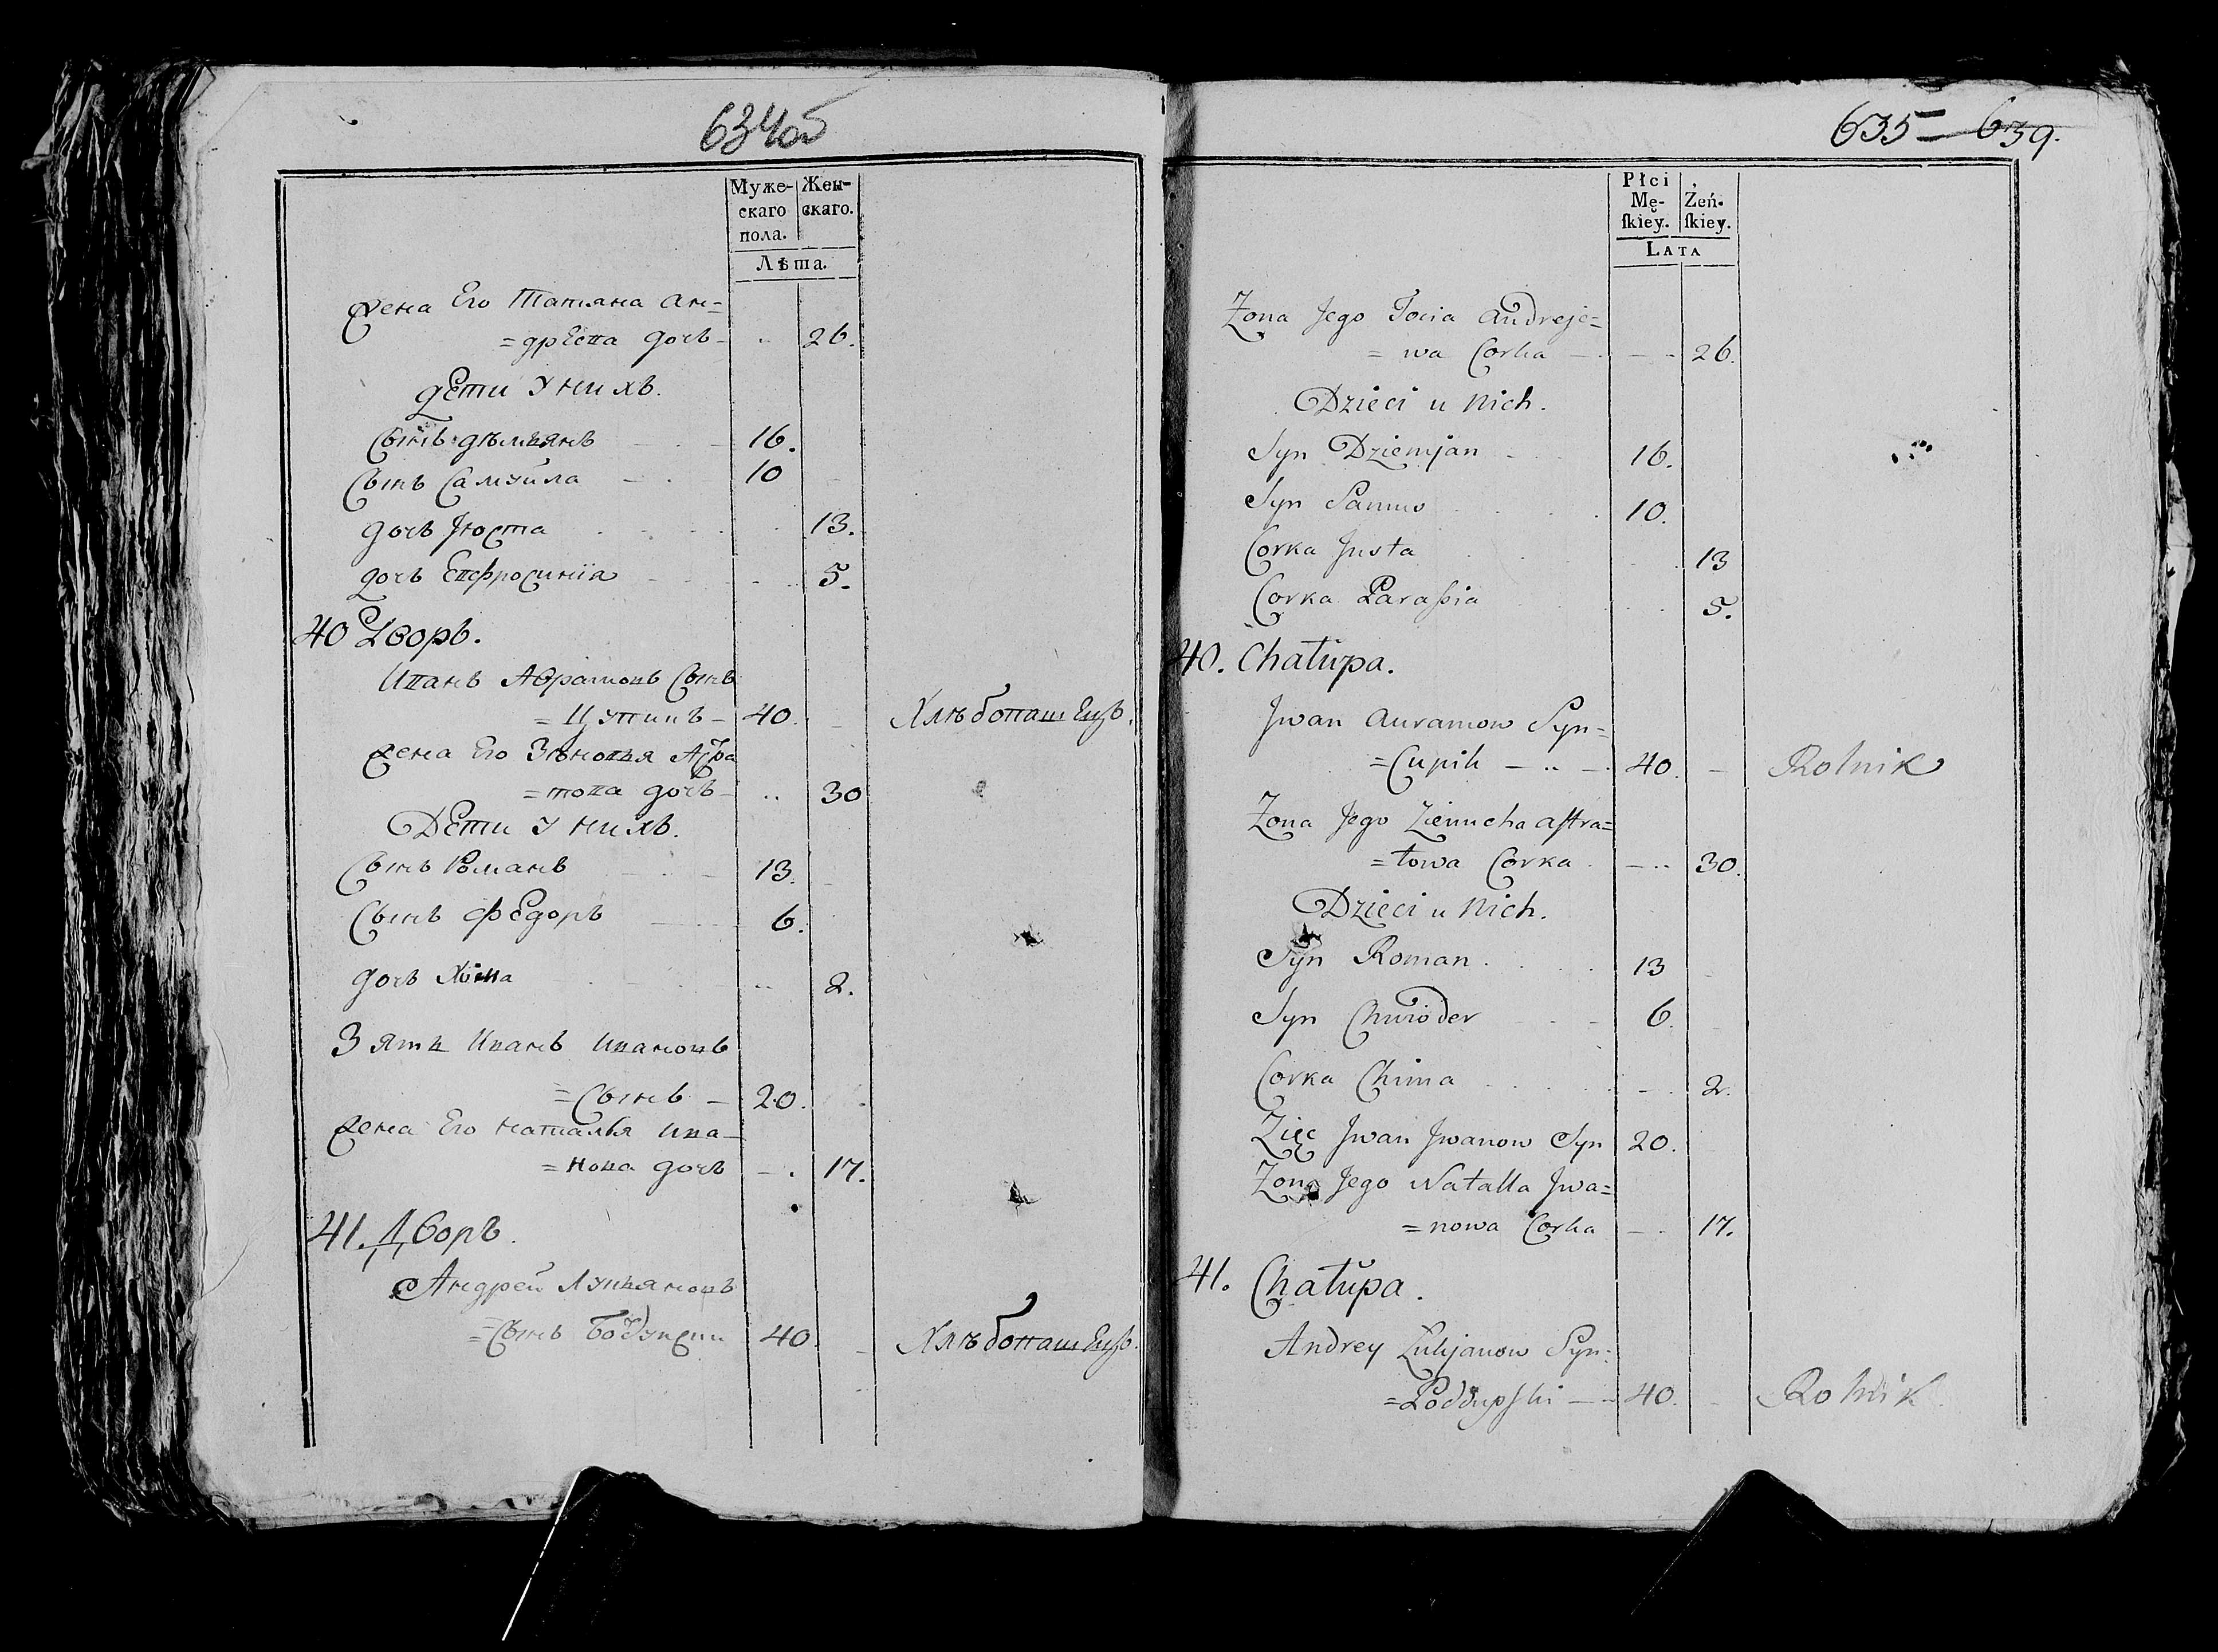 634об
Муже-
скаго
пола.
Жен-
скаго.
Лѣта.
Жена Его Татяна Ан=
=дрЕева дочь - .. 26.
дЕти У нихъ.
Сынъ дѣмьянъ 16.
Сынъ Самуйла 10
дочь Юста 13.
дочь Ефросинїа 5.
40 Дворъ.
Иванъ Аврамовъ Сынъ
= Цупикъ - 40. Хлѣбопашецъ.
Жена Его Зѣновья
=това дочь - .. 30
ДЕти У нихъ.
Сынъ Романъ 13.
Сынъ ФЕдоръ 6.
дочь Хима 2.
Зять Иванъ Ивановъ
=Сынъ - 20.
Жена Его Наталья Ива-
=нова дочь 17.
41. Дворъ.
Андрей Лукьяновъ
=Сынъ 40. Хлѣбопашецъ.
635 - 639.
Płci
Mę-
ſkiey.
Żeń-
ſkiey.
Lata
Zona Jego Tocia Andreje=
= wa Corka 26.
Dzieci u Nich.
Syn Dziemjan 16.
Syn 10.
Corka Justa 13
Corka Paraſia 5.
40. Chałupa.
Jwan Auramow Syn=
=Cupik 40. Rolnik
Zona Jego Zienucha Aſtra=
=towa Corka 30.
Dzieci u Nich.
Syn Roman 13
Syn Chwioder 6.
Corka Chima 2.
Zięc Jwan Jwanow Syn 20.
Zona Jego Natalla Jwa=
=nowa Corka 17.
41. Chałupa.
Andrey Łukjanow Syn=
=Poddupſki 40. Rolnik